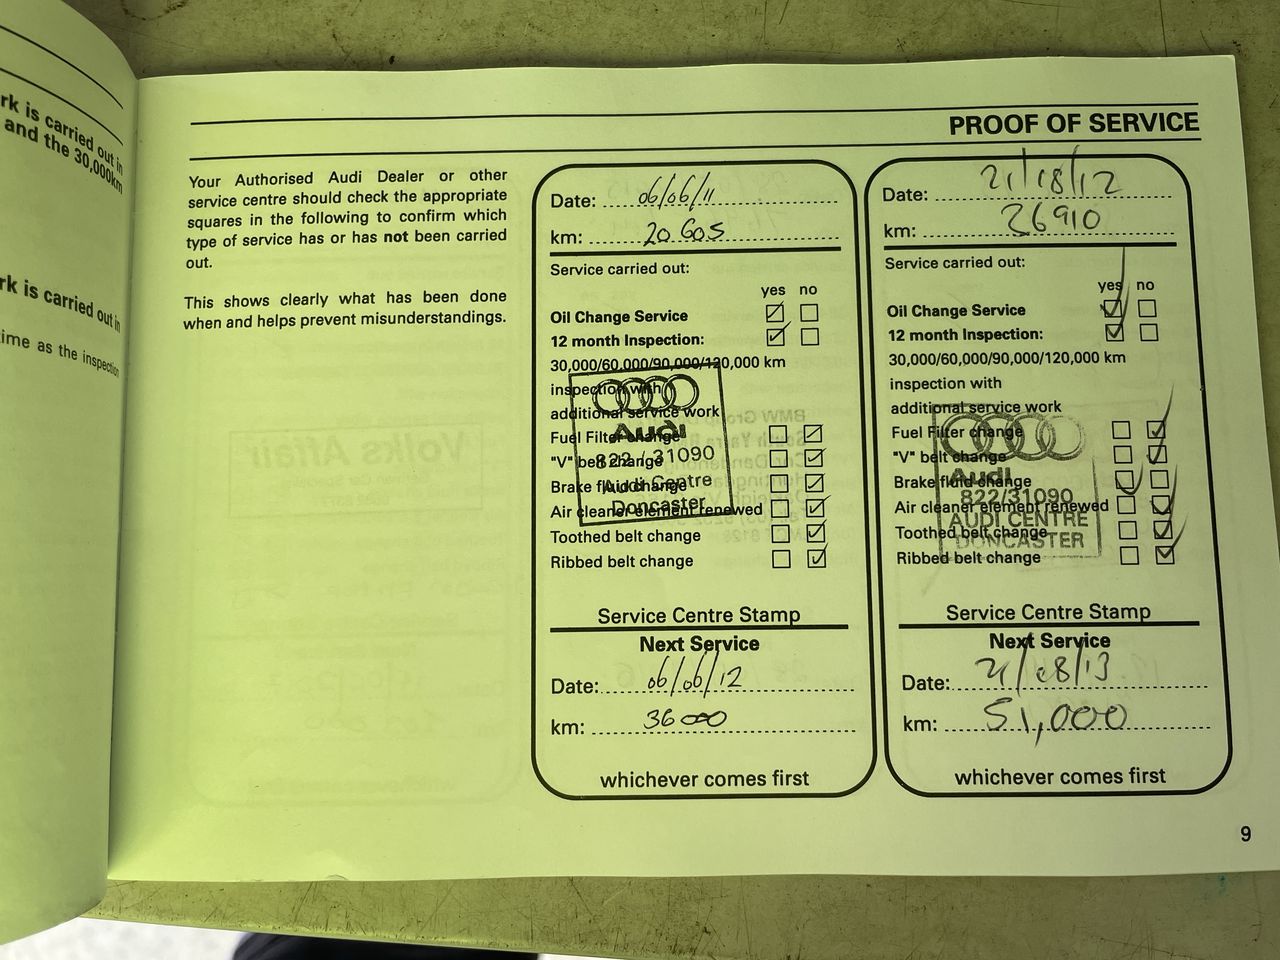 rk is carried out in
and the 30,000km
rk is carried out in
ime as the inspection
PROOF OF SERVICE
Your Authorised Audi Dealer or other
service centre should check the appropriate
squares in the following to confirm which
type of service has or has not been carried
out.
This shows clearly what has been done
when and helps prevent misunderstandings.
Date: 06/06/11
km: 20 605
Service carried out:
yes no
Oil Change Service
12 month Inspection:
30,000/60,000/90,000/120,000 km
inspection with
additional service work
Fuel Filter change
"V" belt change
Brake fluid change
Air cleaner element renewed
Toothed belt change
Ribbed belt change
Audi
822 / 31090
Audi Centre
Doncaster
Service Centre Stamp
Next Service
Date: 06/06/12
km: 36000
whichever comes first
Date: 21/08/12
km: 26910
Service carried out:
yes no
Oil Change Service
12 month Inspection:
30,000/60,000/90,000/120,000 km
inspection with
additional service work
Fuel Filter change
"V" belt change
Brake fluid change
Air cleaner element renewed
Toothed belt change
Ribbed belt change
Audi
822/31090
AUDI CENTRE
DONCASTER
Service Centre Stamp
Next Service
Date: 21/08/13
km: 51,000
whichever comes first
9